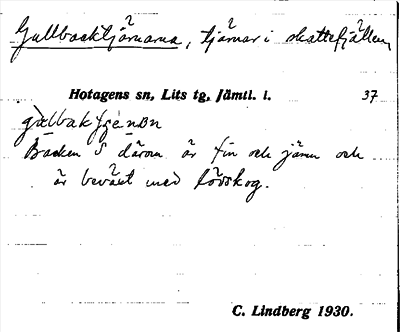 Gullbacktjärnarna, tjärnar i skattefjällen
Hotagens sn, Lits tg, Jämtl. l. 37
Backen S därom är fin och jämn och
är beväxt med lövskog.
C. Lindberg 1930.